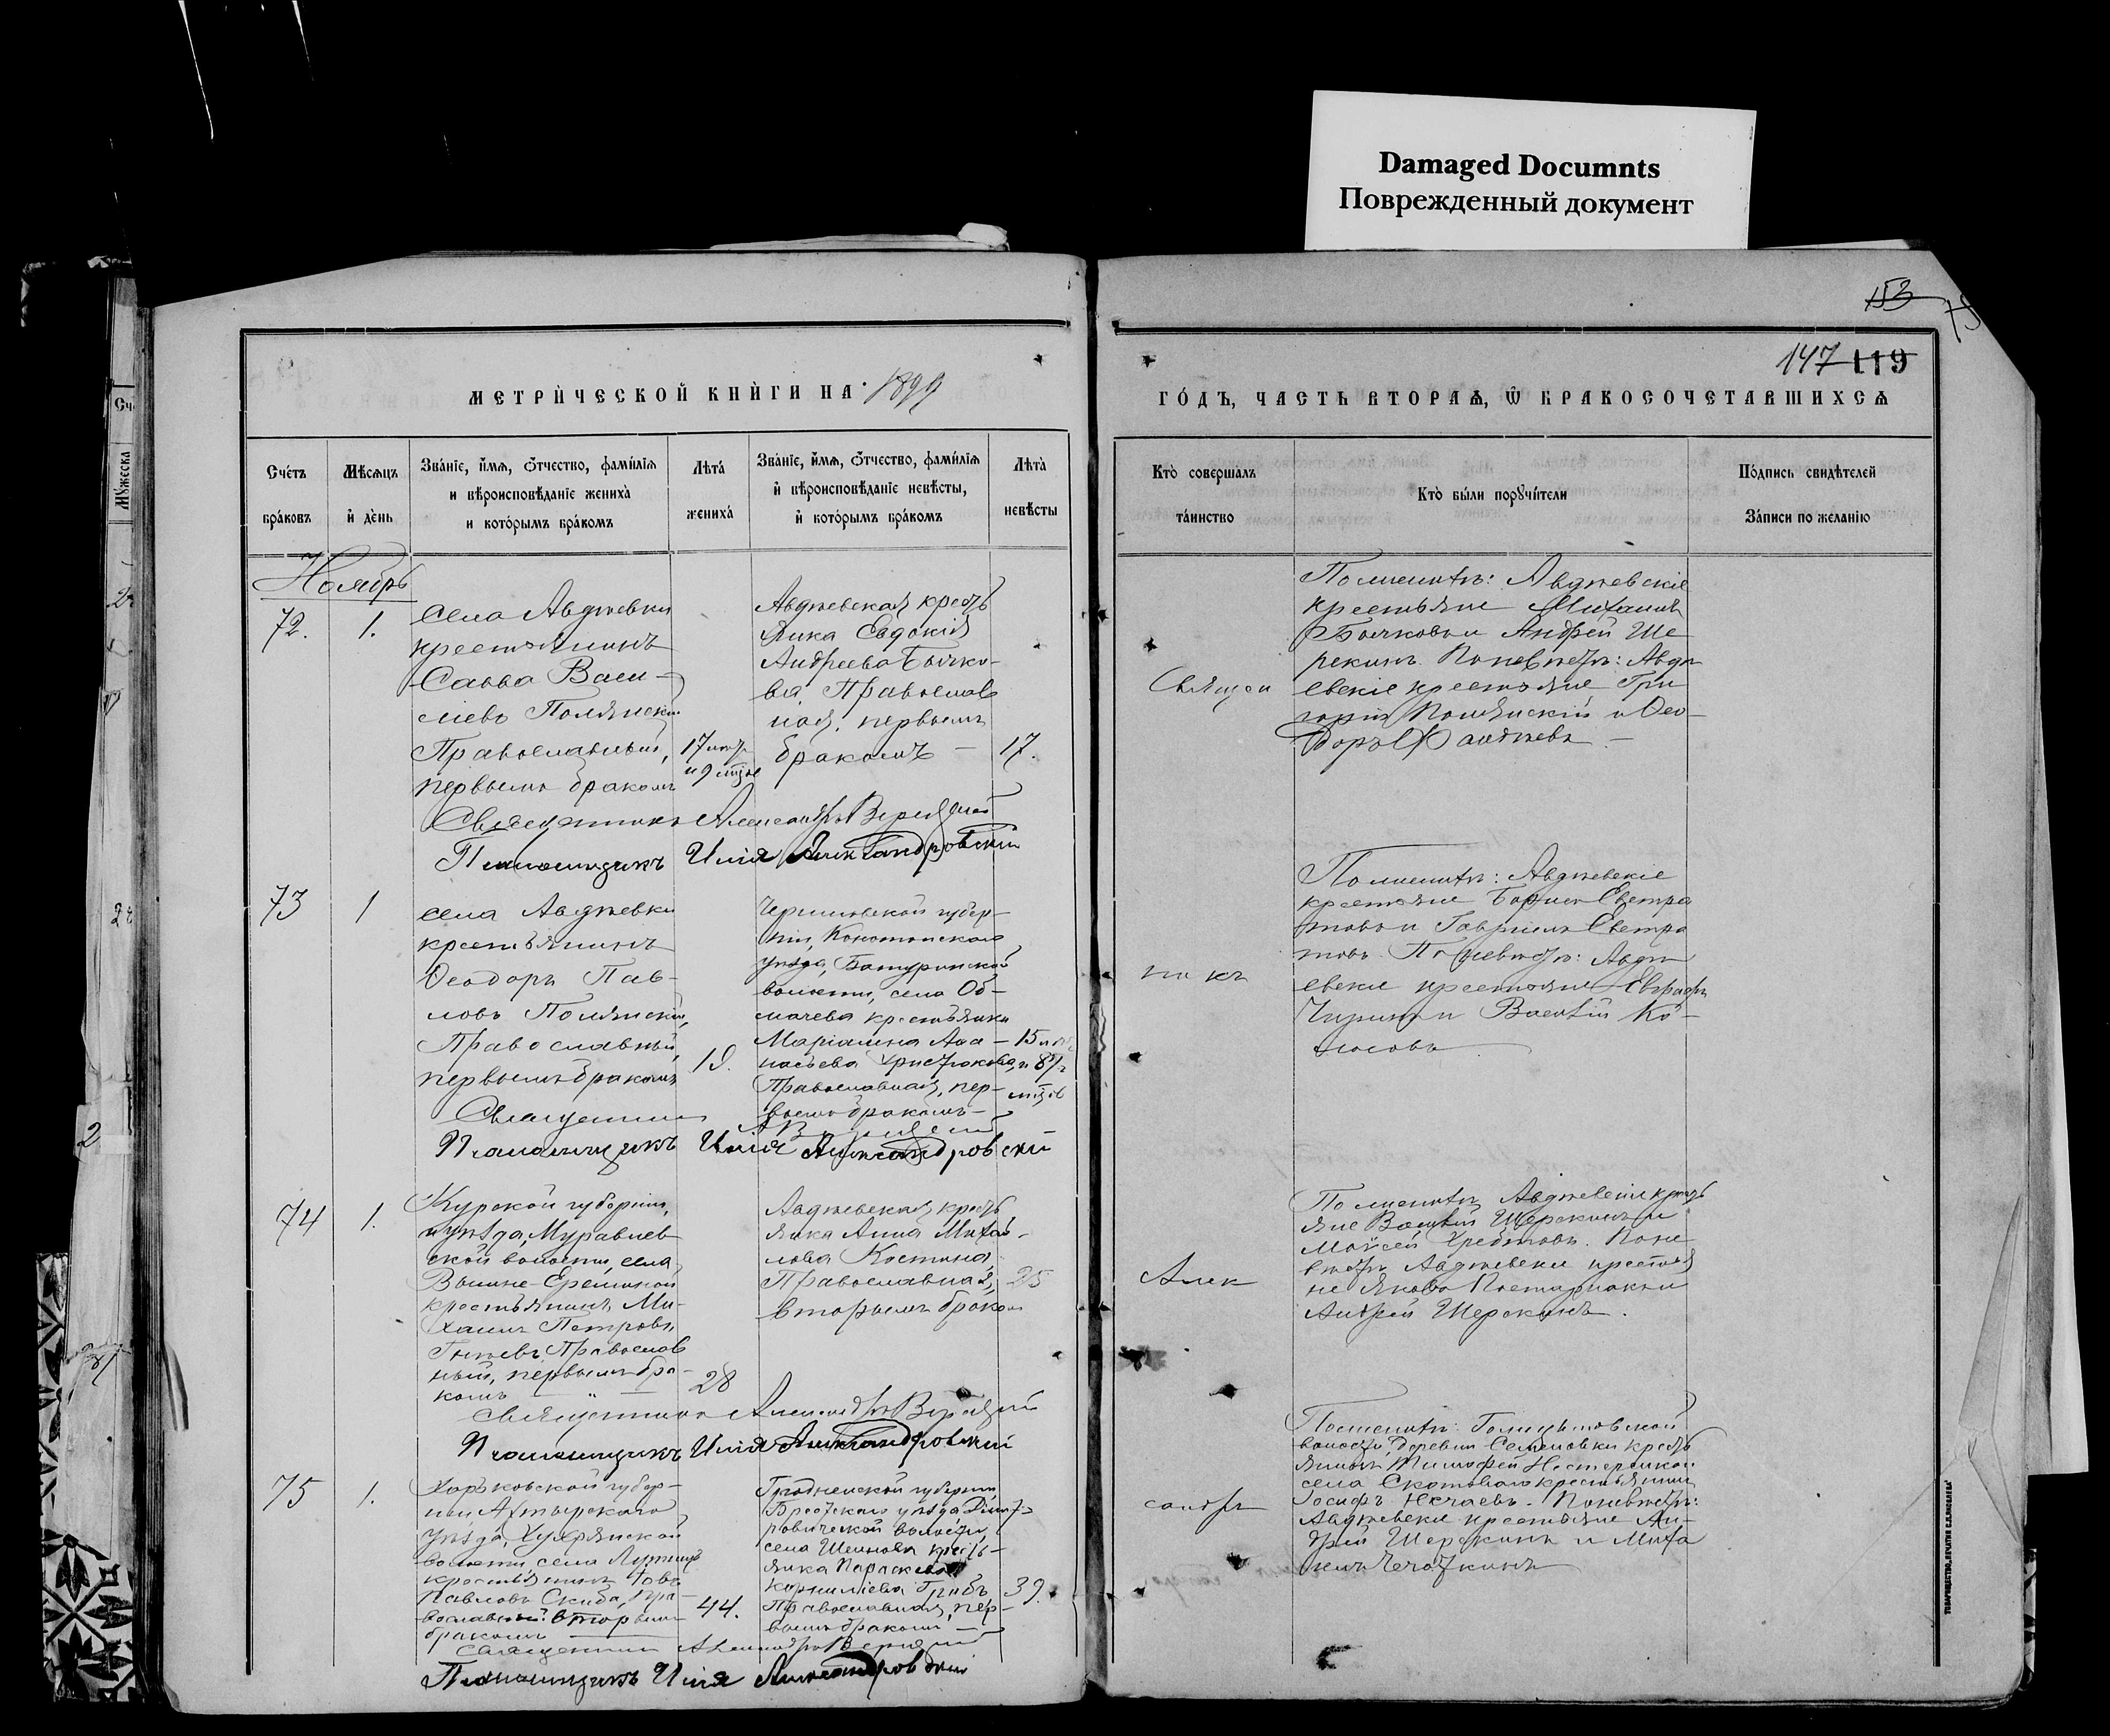 Damaged Documnts
Поврежденный документ
153
147 119
МЕТРИ́ЧЕСКОЙ КНИ́ГИ НА 1899
ГО́ДЪ, ЧАСТЬ ВТОРАѦ, Ѿ БРАКОСОЧЕТАВШИХСѦ
Сче́тъ бра́ковъ
Мѣ́сѧцъ и҆ де́нь
Зва́нїе, и҆́мѧ, ѻ҆́тчество, фами́лїѧ
и вѣроисповѣ́данїе жениха̀
и кото́рымъ бра́комъ
Лѣ́та жениха́
Зва́нїе, и҆́мѧ, ѻ҆́тчество, фами́лїѧ
и҆ вѣроисповѣ́данїе невѣ́сты,
и҆ кото́рымъ бра́комъ
Лѣ́та невѣ́сты
Кто̀ соверша́лъ та́инство
Кто̀ бы́ли порꙋчи́тели
По́дпись свидѣ́телей
За́писи по жела́нїю
Ноябрь
72.
1.
села Авдѣевки
крестьянинъ
Савва Васи-
ліевъ Полянскій
Православный,
первымъ бракомъ
17 лѣтъ
и 9 мцсе
Авдѣевская кресть
янка Евдокія
Андреева Бычко-
ва, Православ
ная, первымъ
бракомъ —
17.
Священ
Поженихѣ: Авдѣевскіе
крестьяне Михаилъ
Бычковъ и Андрей Ше
рекинъ. Поневѣстѣ: Авдѣ
евскіе крестьяне Гри
горій Полянскій и Ѳео-
доръ
Священникъ Александръ Верецкій
Псаломщикъ Илія Александровскій
73
1
села Авдѣевки
крестьянинъ
Ѳеодоръ Пав-
ловъ Полянскій,
Православный,
первымъ бракомъ
19.
Черниговской губер-
ніи, Конотопскаго
уѣзда, Батуринской
волости, села Об-
мачева крестьянка
Маріамна Ааа-
насьева
Православная, пер-
вымъ бракомъ —
15 лѣтъ
и 8½
мцсв
никъ
Поженихѣ: Авдѣевскіе
крестьяне Борисъ Евстра
товъ и Гавріилъ Евстра
товъ. Поневѣстѣ: Авдѣ
евскіе крестьяне Евграфъ
и Василій Ко-
лосовъ
Священникъ
Псаломщикъ Илія Александровскій
74
1.
Курской губерніи,
и уѣзда, Муравлев
ской волости, села
крестьянинъ Ми-
хаилъ Петровъ
Православ
ный, первымъ бра-
комъ — " —
28
Авдѣевская кресть
янка Анна Михай-
лова Костина,
Православная,
вторымъ бракомъ
25
Алек
Поженихѣ Авдѣевскіе кресть
яне Василій Шерекинъ и
Моѵсей Хребтовъ. Поне
вѣстѣ Авдѣевскіе крестья
не Яковъ и
Андрей Шерекинъ.
Священникъ Александръ Верецкій
Псаломщикъ Илія Александровскій
75
1.
Харьковской губер-
ніи, Ахтырскаго
уѣзда, Хухрянской
волости, села
крестьянинъ Іовъ
Павловъ Скиба, Пра-
вославный, вторымъ
бракомъ —
44.
Гродненской губерніи,
Брестскаго уѣзда
волости,
села кресть-
янка Параскева
Корниліева Грибъ,
Православная, пер-
вымъ бракомъ —
39.
сандръ
Поженихѣ:
волости, деревни Семеновки кресть
янинъ Тимофей Нестеренко и
села Скотоватаго крестьянинъ
Іосифъ Нечаевъ. Поневѣстѣ:
Авдѣевскіе крестьяне Ан-
дрей Шерекинъ и Миха
илъ Чечоткинъ
Священникъ Александръ Верецкій
Псаломщикъ Илія Александровскій